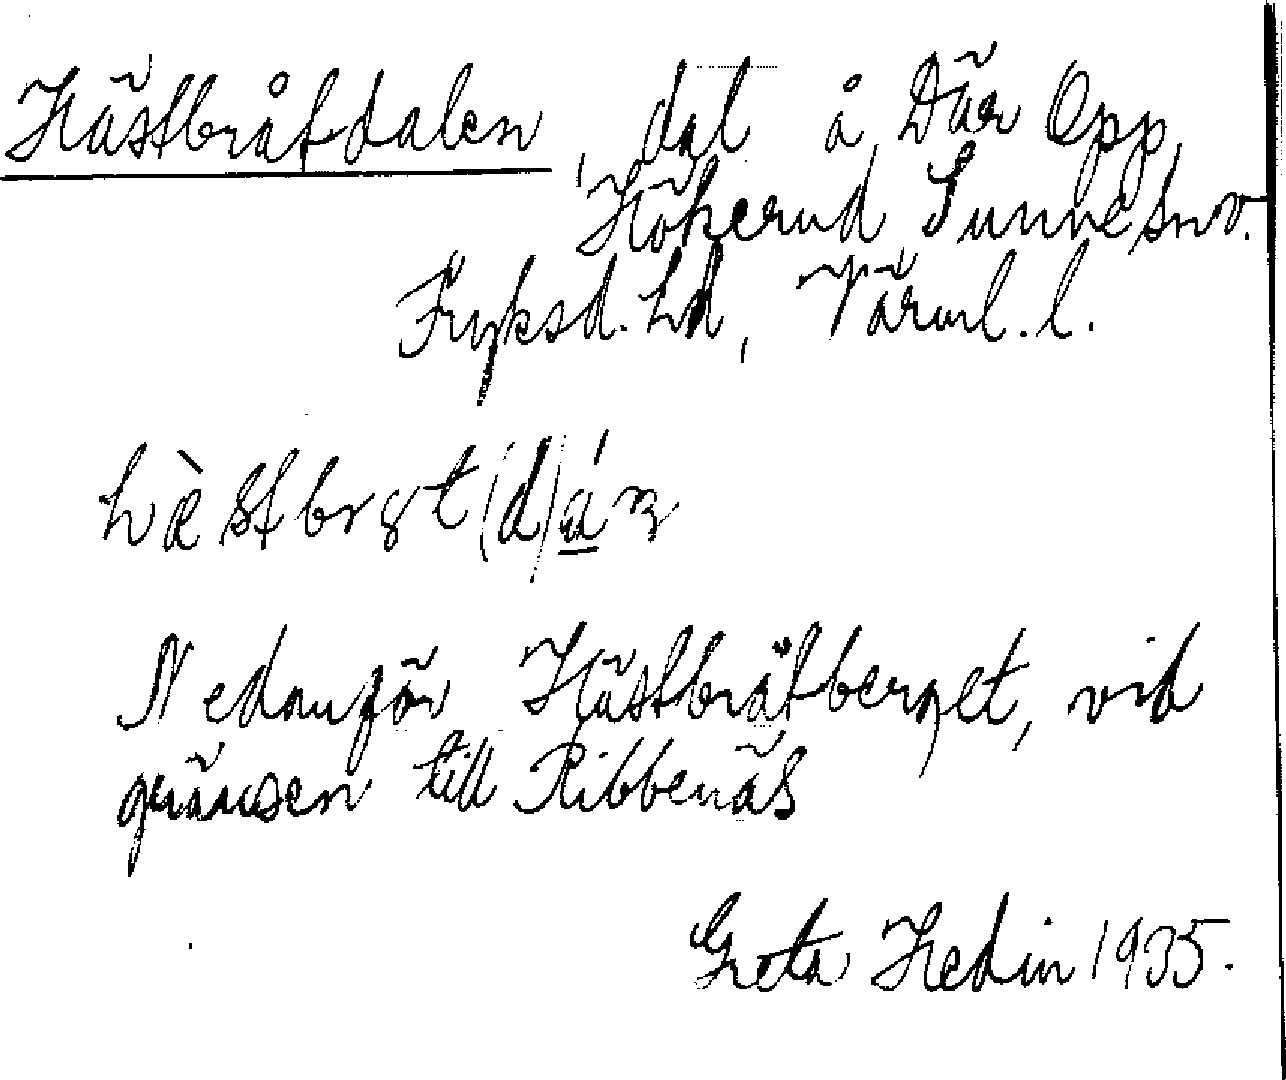 Hästbråtdalen, dal å Där Opp,
Hökerud, Sunne snv.
Fryksd. hd, Värml. l.
Nedanför Hästbråtberget, vid
gränsen till Ribbenäs
Greta Hedin 1935.